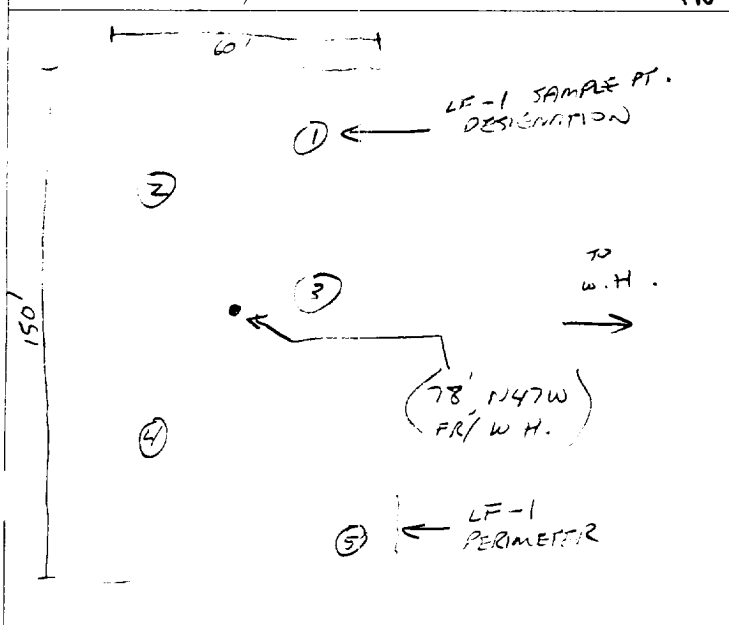 60'
LF-1 SAMPLE PT.
DESIGNATION
1
2
TO
W.H.
3
150'
(78', N47W
FR/ W.H.)
4
LF-1
PERIMETER
5